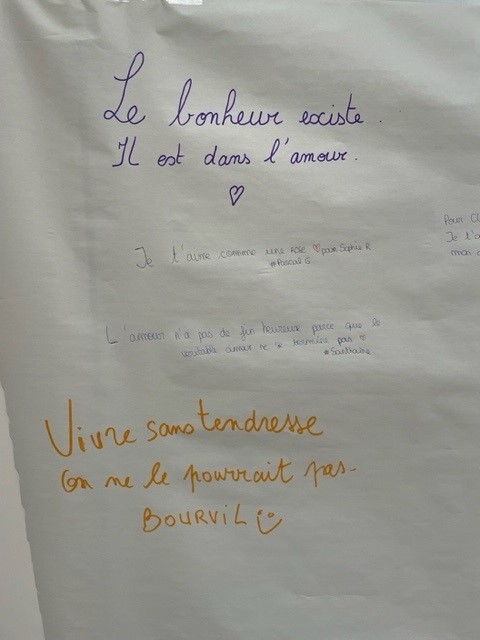 Le bonheur existe.
Il est dans l'amour.
♡
Je t'aime comme une rose ♡ pour Sophie R
#Pascal G
Pour
Je t'a
mon
L'amour n'a pas de fin heureuse parce que le
véritable amour ne se termine pas ♡
Vivre sans tendresse
On ne le pourrait pas.
BOURVIL